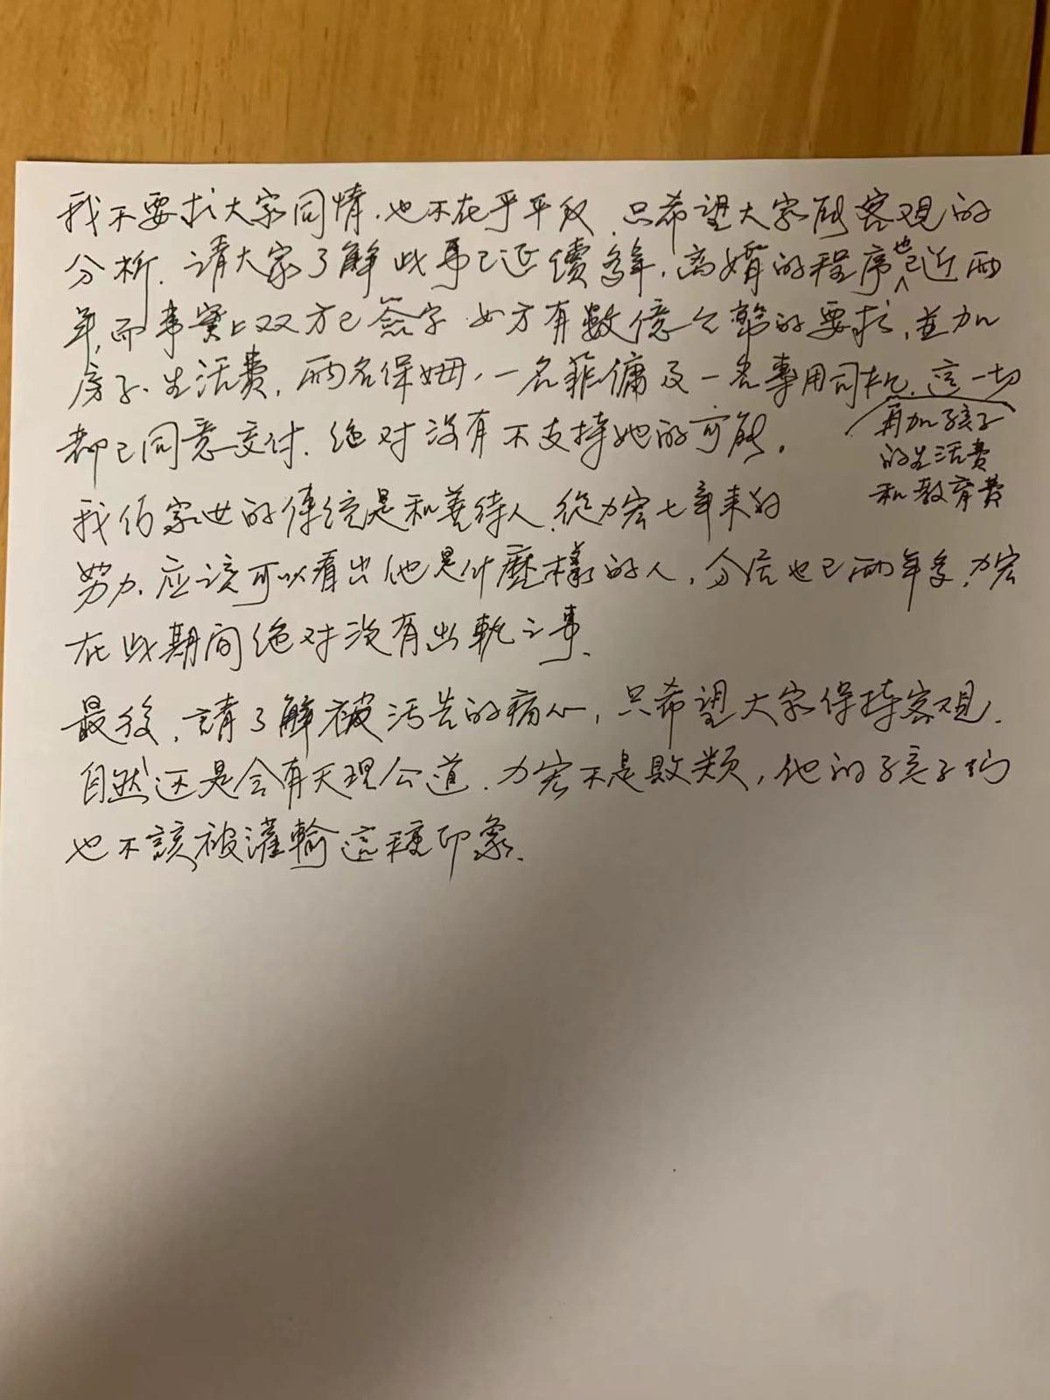 我不要求大家同情．也不在乎平反．只希望大家能客观的
分析．请大家了解此事已延續多年，离婚的程序也已近两
年，而事實上双方已簽字．女方有数億台幣的要求，並加
房子、生活費，兩名保姆，一名菲傭及一名專用司机．這一切
再加孩子
的生活費
和教育費
都已同意交付．绝对沒有不支持她的可能。
我们家世的傳統是和善待人．從力宏七年来的
努力．应该可以看出他是什麼樣的人，分居也已两年多，力宏
在此期间绝对沒有出軌之事．
最後，請了解被污告的痛心，只希望大家保持客观．
自然还是会有天理公道．力宏不是敗類，他的孩子们
也不該被灌輸這種印象．